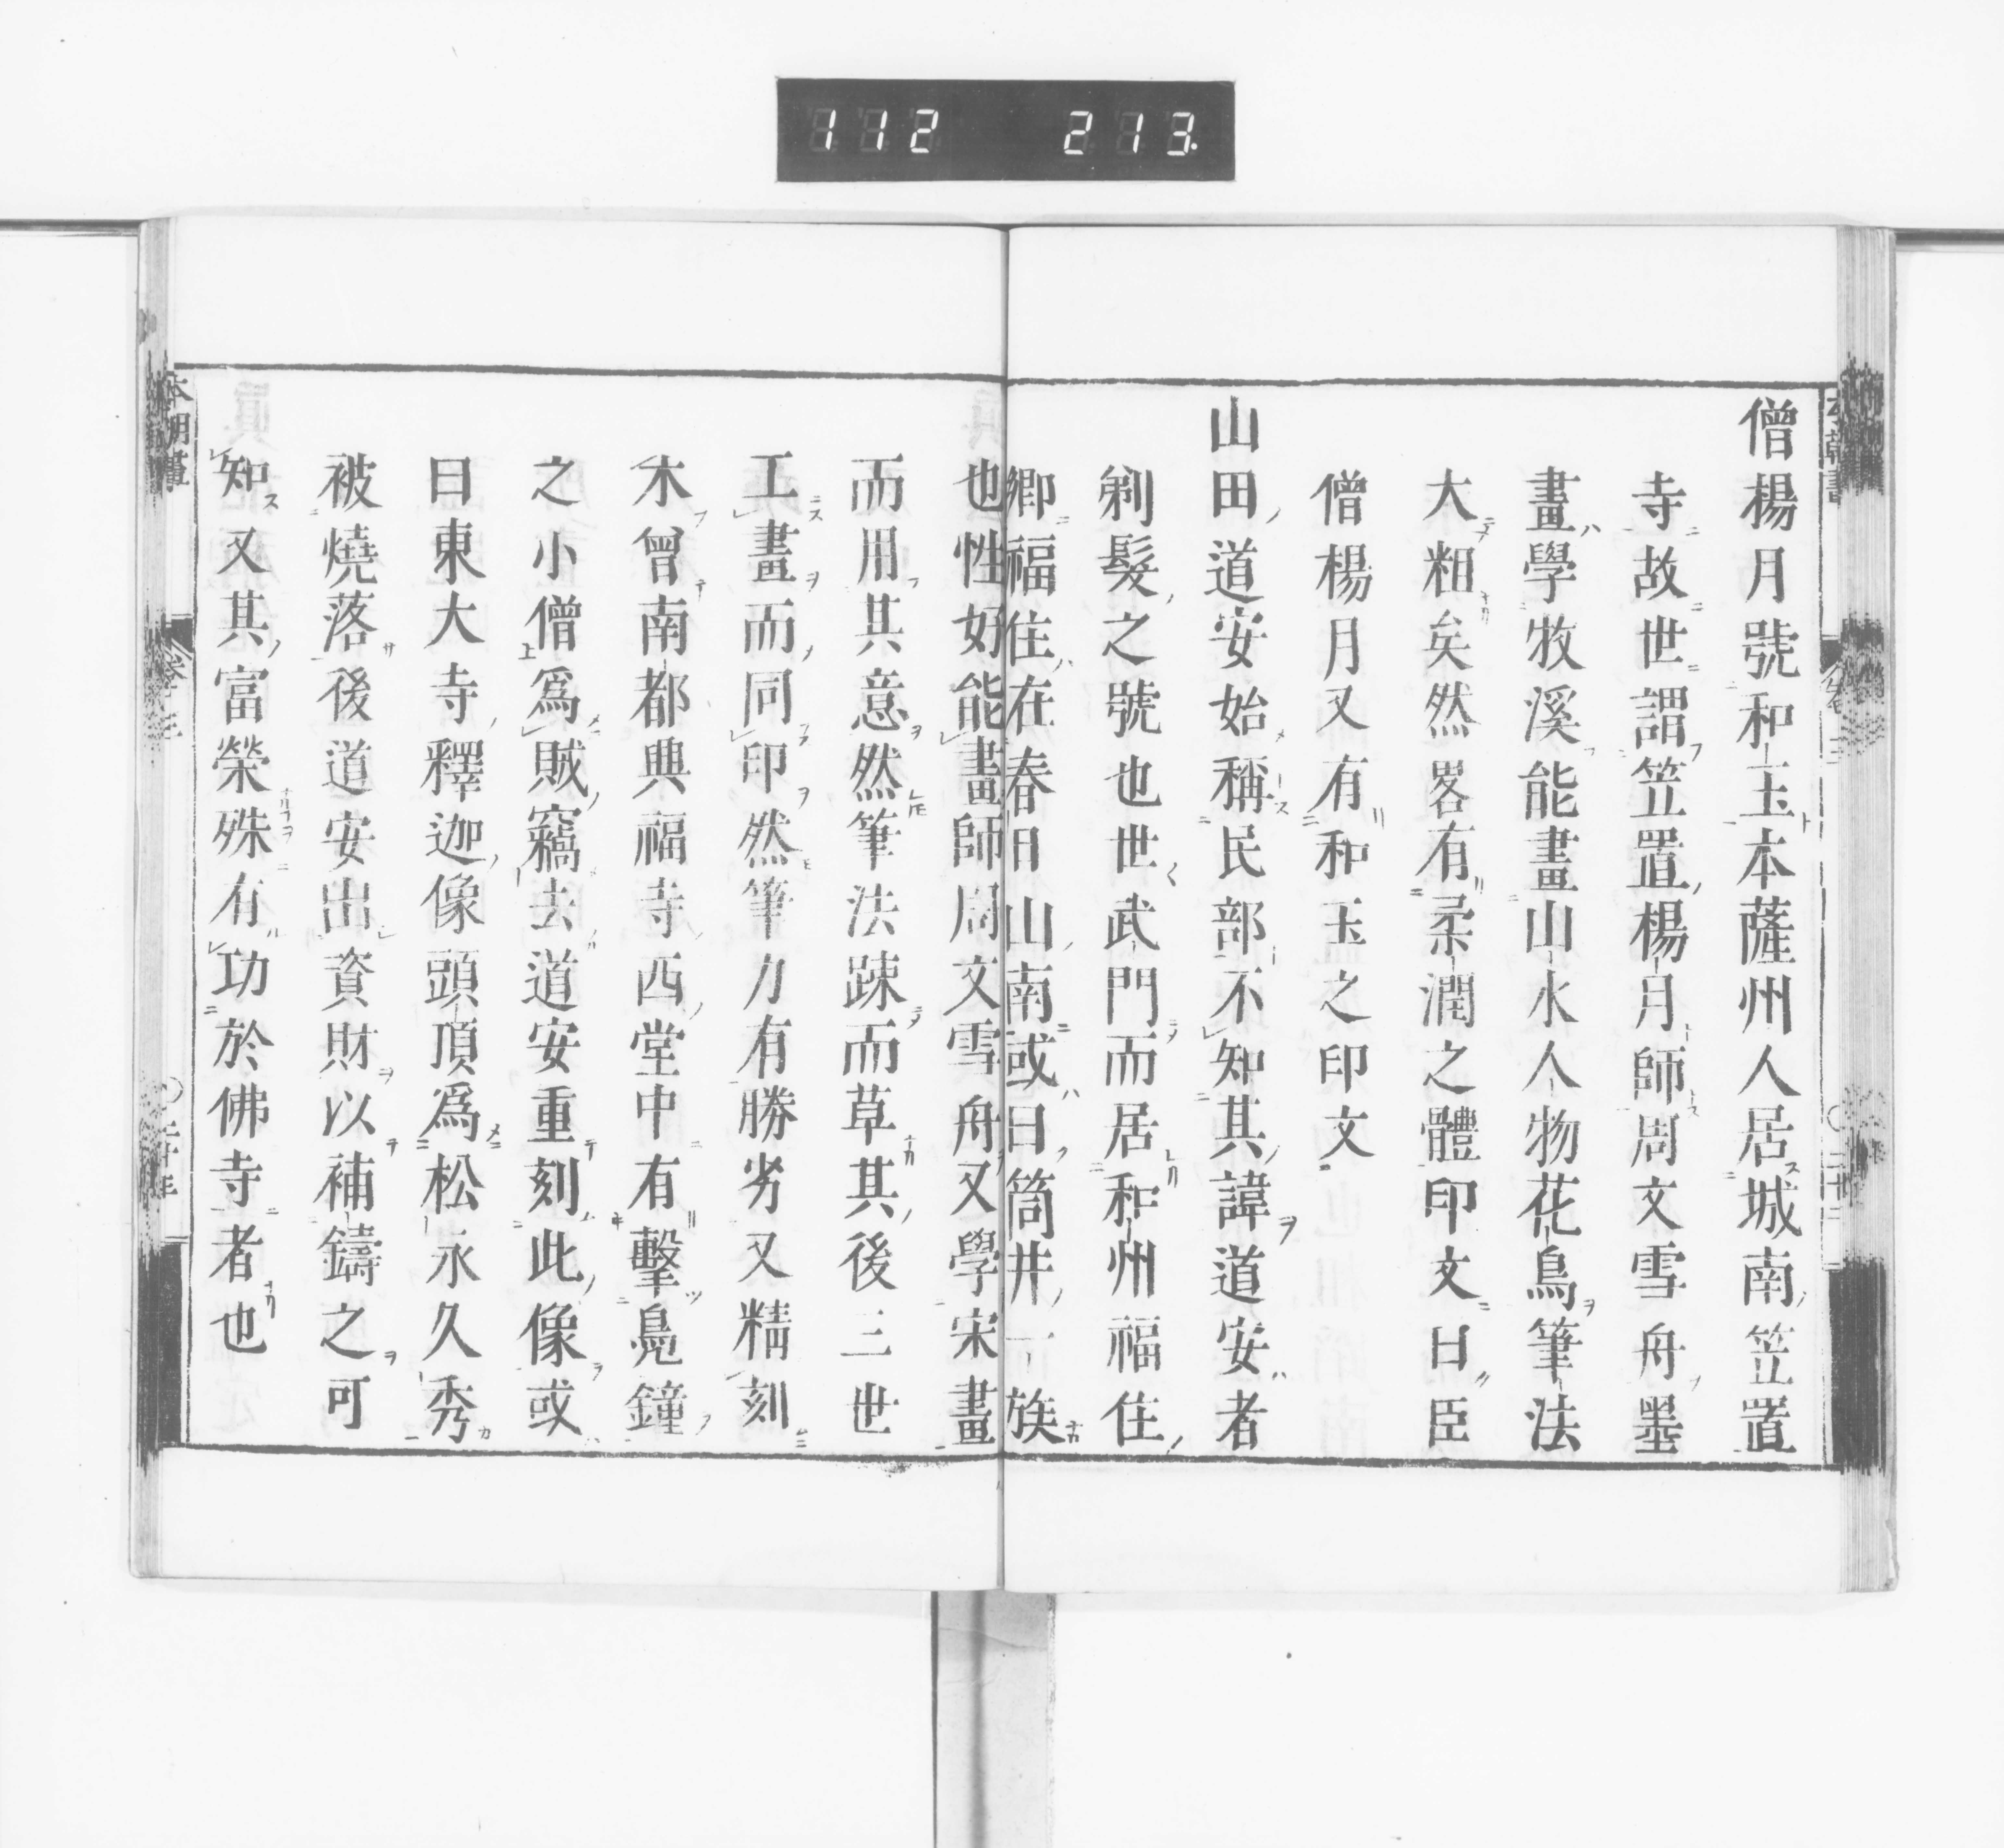 112 213.
僧楊月號和玉本薩州人居城南笠置
寺故世謂笠置楊月師周文雪舟墨
畫學牧溪能畫山水人物花鳥筆法
大粗矣然畧有柔潤之體印文曰臣
僧楊月又有和玉之印文
山田道安始稱民部不知其諱道安者
剃髮之號也世武門而居和州福住
鄉福住在春日山南或曰筒井一族
也性好能畫師周文雪舟又學宋畫
而用其意然筆法踈而草其後三世
工畫而同印然筆力有勝劣又精刻
木曾南都興福寺西堂中有擊鳧鐘
之小僧爲賊竊去道安重刻此像或
曰東大寺釋迦像頭頂爲松永久秀
被燒落後道安出資財以補鑄之可
知又其富榮殊有功於佛寺者也